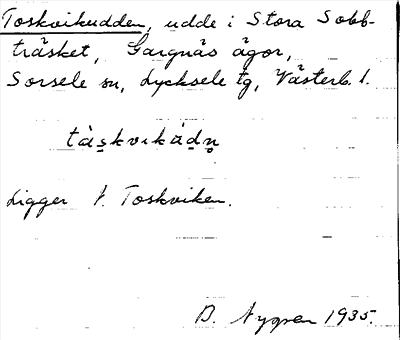 Toskvikudden, udde i Stora Sobb-
träsket, Gargnäs ägor,
Sorsele sn, Lycksele tg, Västerb. l.
tàskvikádn
Ligger v. Toskviken.
D. Nygren 1935.